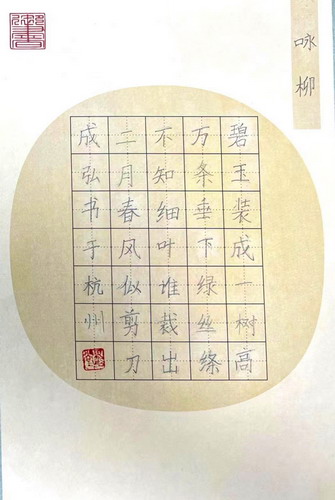 咏柳
碧玉装成一树高
万条垂下绿丝绦
不知细叶谁裁出
二月春风似剪刀
成弘书于杭州